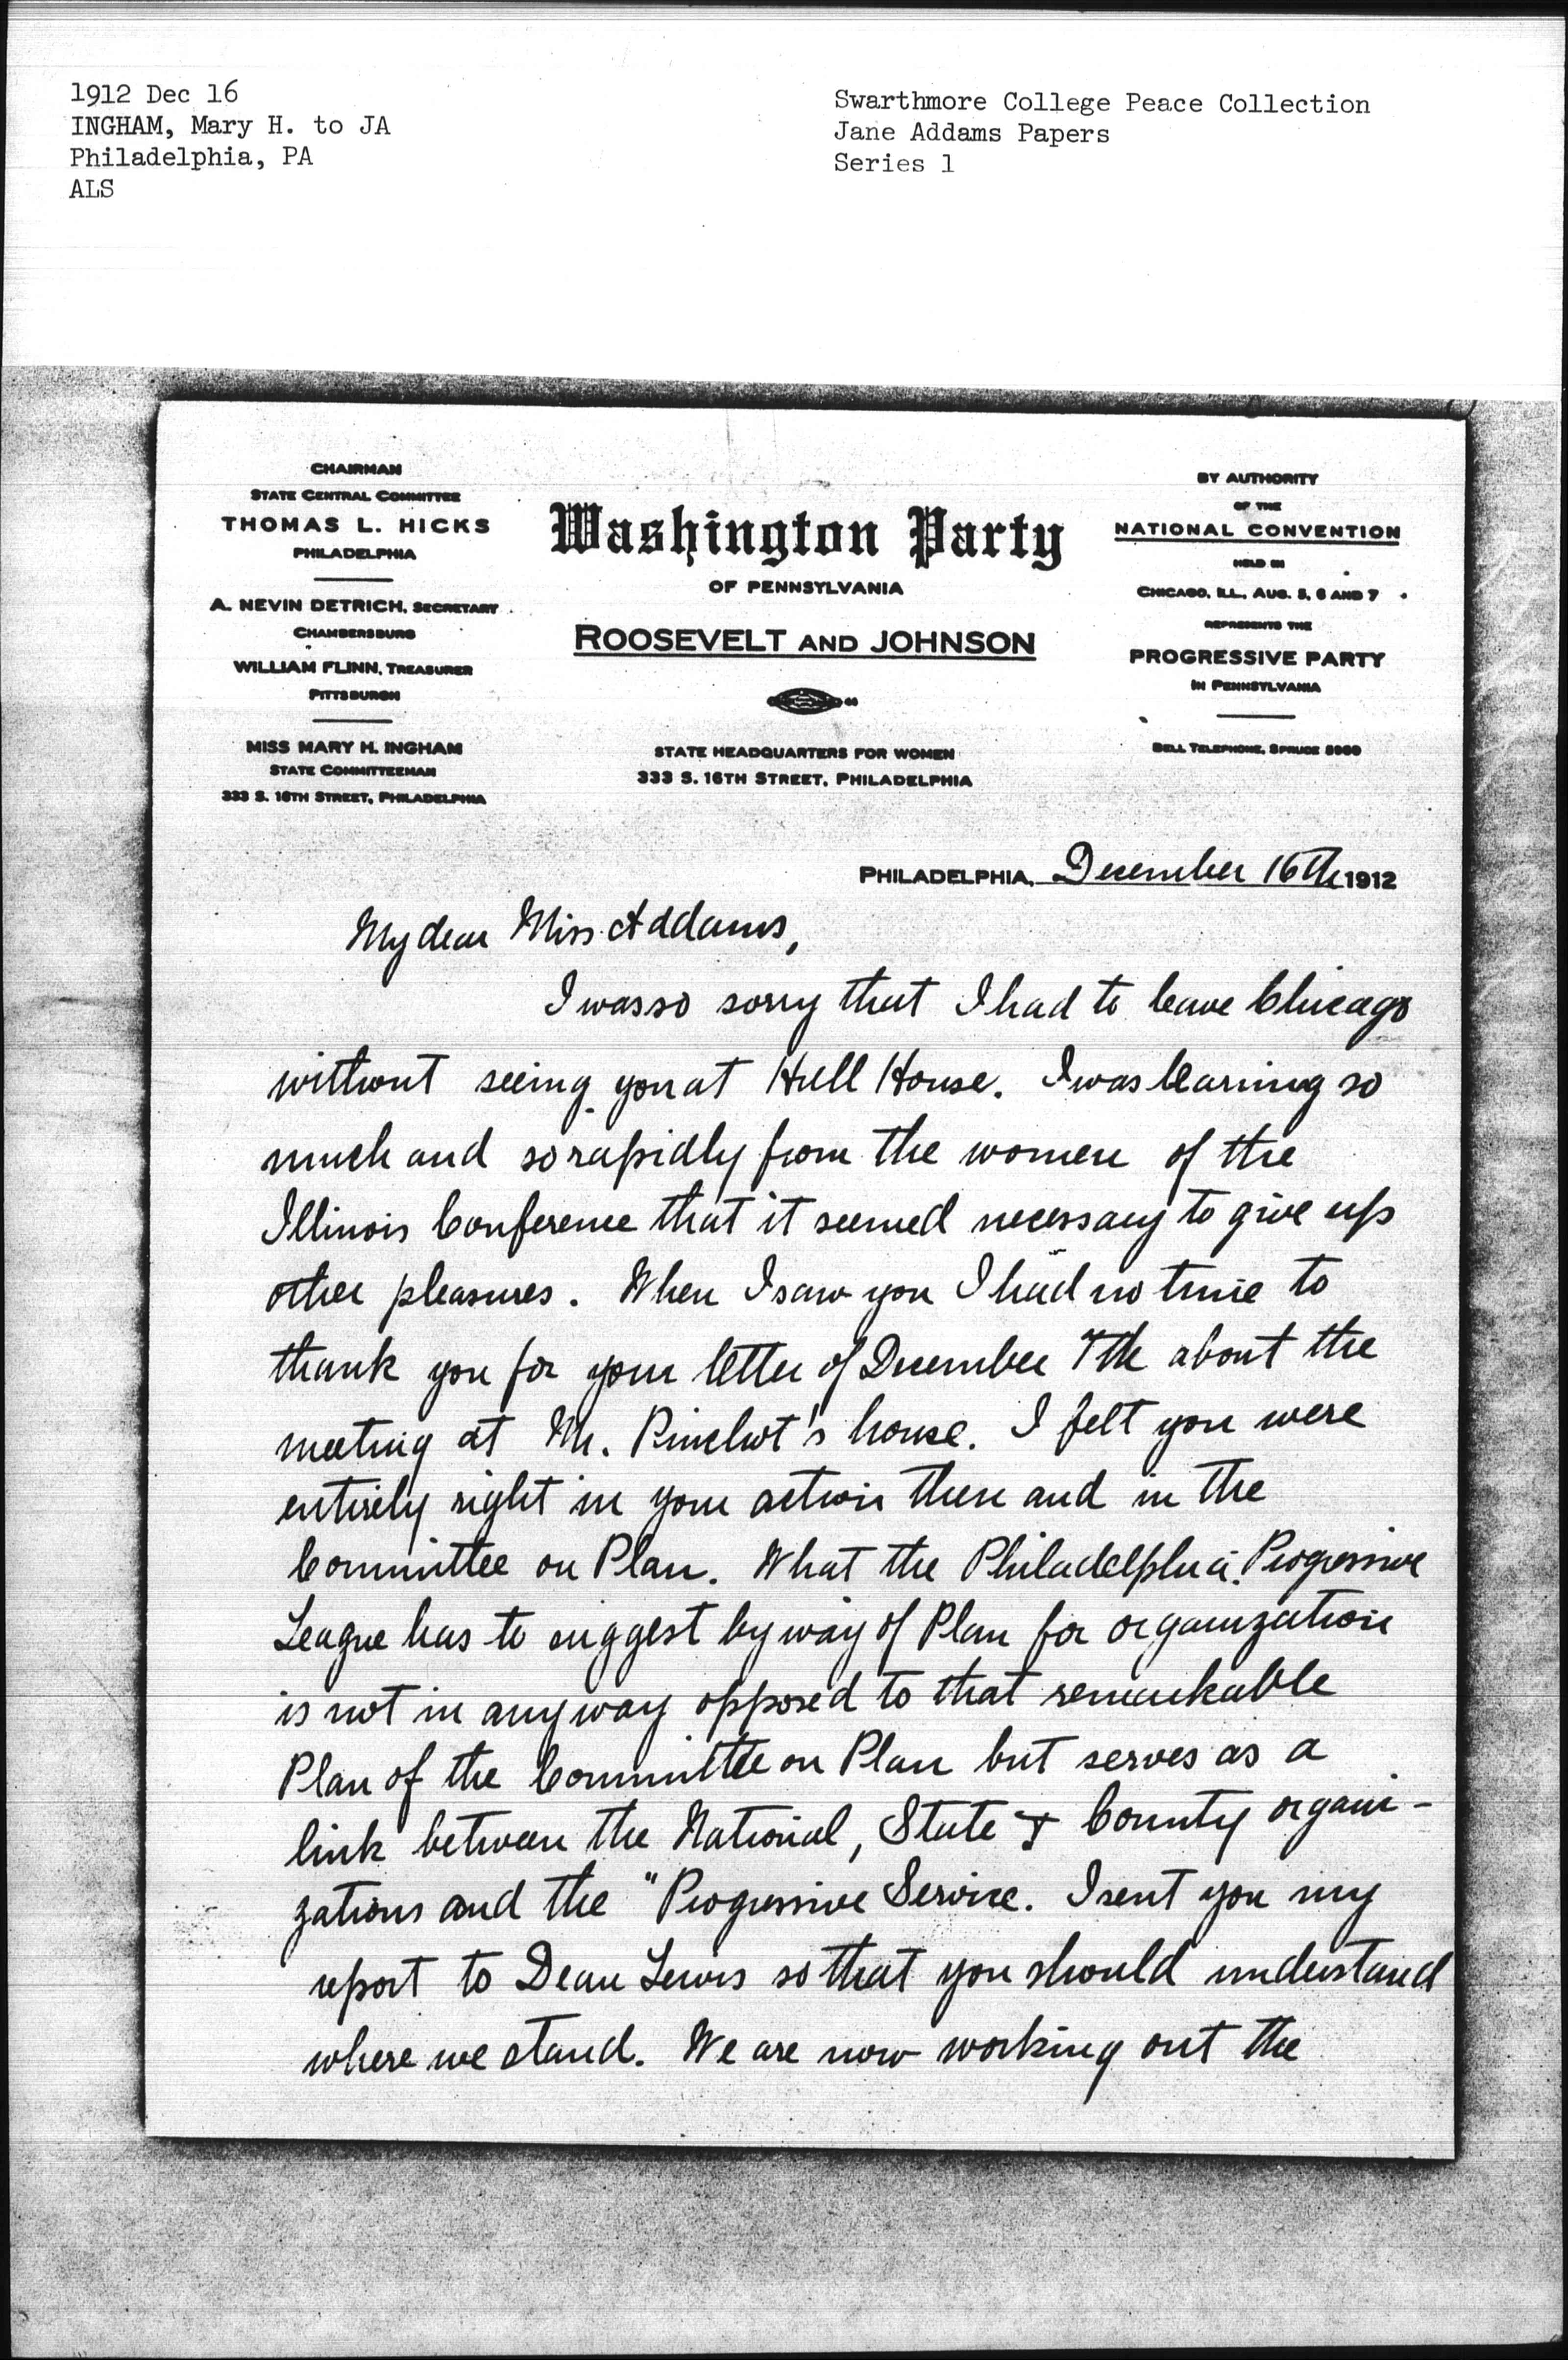 1912 Dec 16
INGHAM, Mary H. to JA
Philadelphia, PA
ALS
Swarthmore College Peace Collection
Jane Addams Papers
Series 1
CHAIRMAN
STATE CENTRAL COMMITTEE
THOMAS L. HICKS
PHILADELPHIA
A. NEVIN DETRICH, SECRETARY
CHAMBERSBURG
WILLIAM FLINN, TREASURER
PITTSBURGH
MISS MARY H. INGHAM
STATE COMMITTEEMAN
333 S. 16TH STREET, PHILADELPHIA
Washington Party
OF PENNSYLVANIA
ROOSEVELT AND JOHNSON
STATE HEADQUARTERS FOR WOMEN
333 S. 16TH STREET, PHILADELPHIA
BY AUTHORITY
OF THE
NATIONAL CONVENTION
HELD IN
CHICAGO, ILL., AUG. 5, 6 AND 7
REPRESENTS THE
PROGRESSIVE PARTY
IN PENNSYLVANIA
BELL TELEPHONE, SPRUCE
PHILADELPHIA, December 16th 1912
My dear Miss Addams,
I was so sorry that I had to leave Chicago
without seeing you at Hull House. I was learning so
much and so rapidly from the women of the
Illinois Conference that it seemed necessary to give up
other pleasures. When I saw you I had no time to
thank you for your letter of December 7th about the
meeting at Mr. Pinchot's house. I felt you were
entirely right in your action there and in the
Committee on Plan. What the Philadelphia Progressive
League has to suggest by way of Plan for organization
is not in any way opposed to that remarkable
Plan of the Committee on Plan but serves as a
link between the National, State & County organi-
zations and the "Progressive Service. I sent you my
report to Dean Lewis so that you should understand
where we stand. We are now working out the